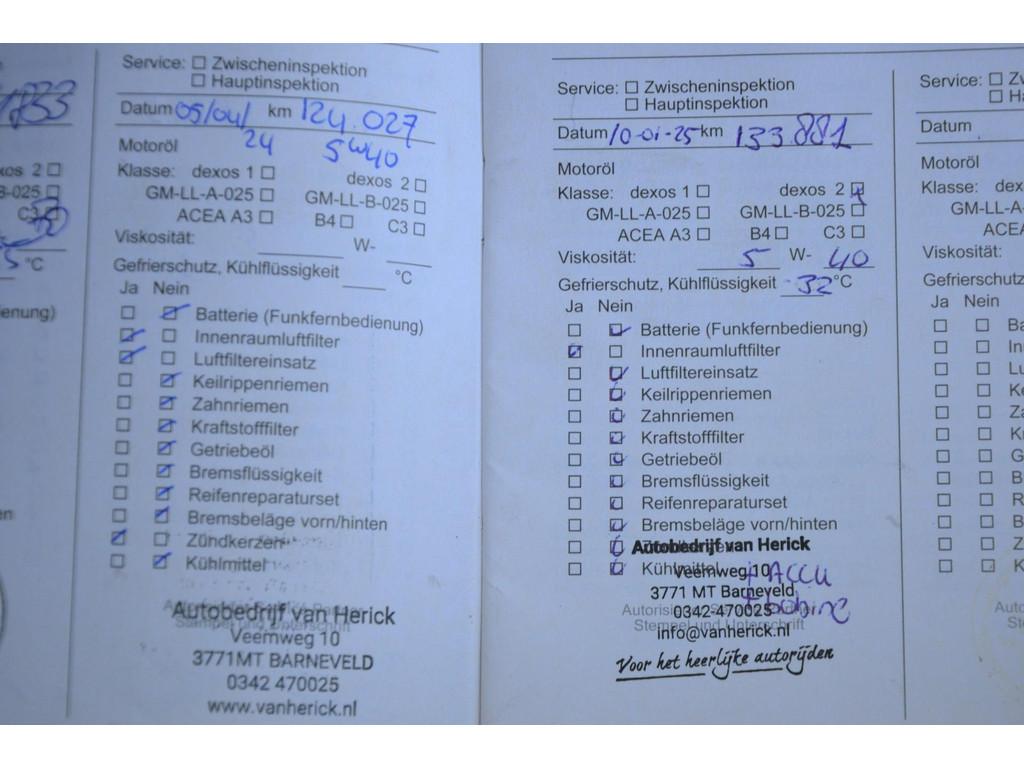 1833
xos 2
B-025
C3
5 °C
enung)
en
Service: Zwischeninspektion
Hauptinspektion
Datum 05/04/ km 124.027
24 5W40
Motoröl
Klasse: dexos 1 dexos 2
GM-LL-A-025 GM-LL-B-025
ACEA A3 B4 C3
Viskosität: W-
Gefrierschutz, Kühlflüssigkeit °C
Ja Nein
Batterie (Funkfernbedienung)
Innenraumluftfilter
Luftfiltereinsatz
Keilrippenriemen
Zahnriemen
Kraftstofffilter
Getriebeöl
Bremsflüssigkeit
Reifenreparaturset
Bremsbeläge vorn/hinten
Zündkerzen
Kühlmittel
Autobedrijf van Herick
Stempel und Unterschrift
Veemweg 10
3771MT BARNEVELD
0342 470025
www.vanherick.nl
Service: Zwischeninspektion
Hauptinspektion
Datum 10-01-25 km 133881
Motoröl
Klasse: dexos 1 dexos 2
GM-LL-A-025 GM-LL-B-025
ACEA A3 B4 C3
Viskosität: 5 W- 40
Gefrierschutz, Kühlflüssigkeit -32 °C
Ja Nein
Batterie (Funkfernbedienung)
Innenraumluftfilter
Luftfiltereinsatz
Keilrippenriemen
Zahnriemen
Kraftstofffilter
Getriebeöl
Bremsflüssigkeit
Reifenreparaturset
Bremsbeläge vorn/hinten
Autobedrijf van Herick
Kühlmittel
Veemweg 10 + ACCU
3771 MT Barneveld
0342-470025 + bobine
Stempel und Unterschrift
info@vanherick.nl
Voor het heerlijke autorijden
Service: Z
Ha
Datum
Motoröl
Klasse: dex
GM-LL-A-
ACEA
Viskosität:
Gefrierschutz
Ja Nein
Ba
In
Lu
Ke
Za
Kr
G
B
R
B
Z
K
Auto
St